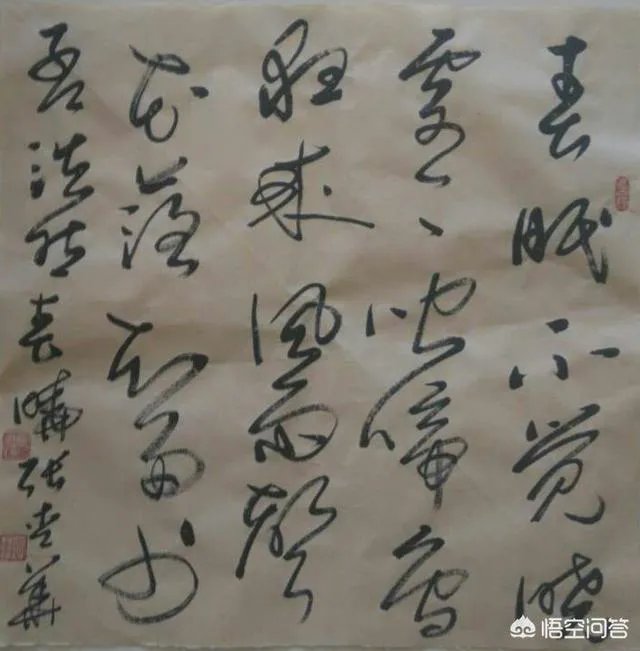 春眠不觉晓
处处闻啼鸟
夜来风雨声
花落知多少
孟浩然春晓 张华
悟空问答